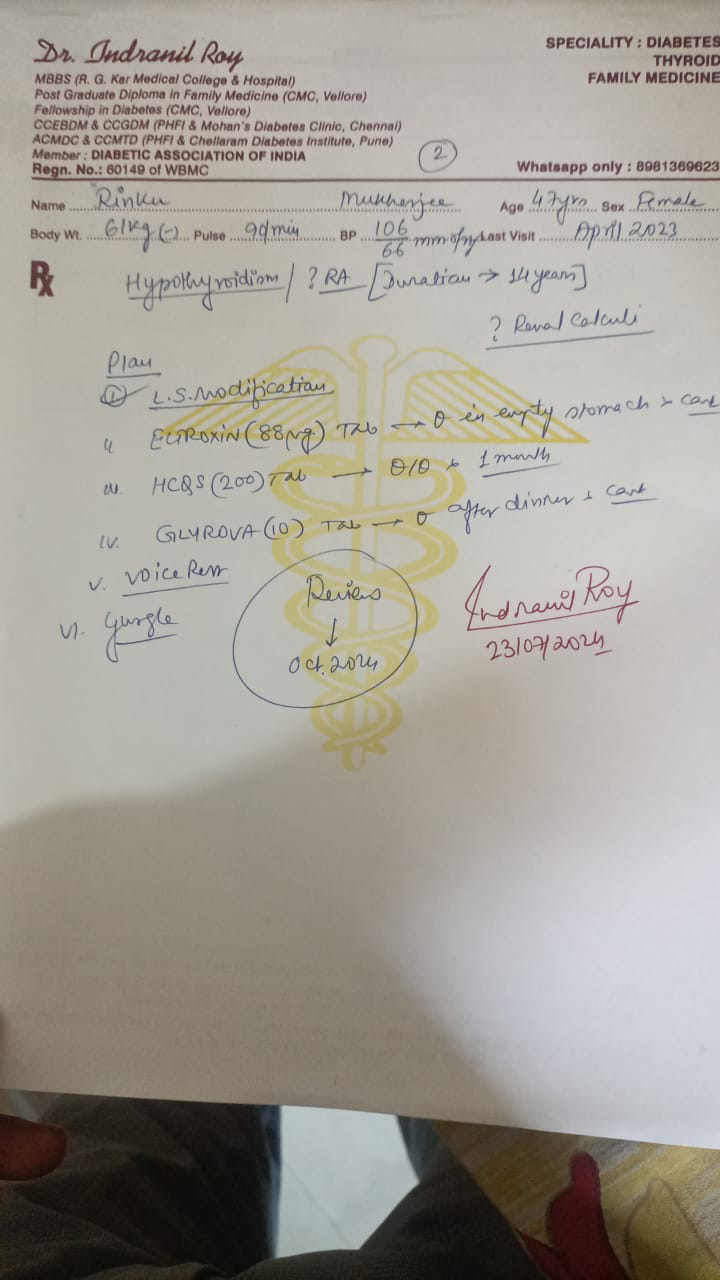 Dr. Indranil Roy
MBBS (R. G. Kar Medical College & Hospital)
Post Graduate Diploma in Family Medicine (CMC, Vellore)
Fellowship in Diabetes (CMC, Vellore)
CCEBDM & CCGDM (PHFI & Mohan's Diabetes Clinic, Chennai)
ACMDC & CCMTD (PHFI & Chellaram Diabetes Institute, Pune)
Member : DIABETIC ASSOCIATION OF INDIA
Regn. No.: 60149 of WBMC
SPECIALITY : DIABETES
THYROID
FAMILY MEDICINE
2
Whatsapp only : 8981369623
Name Rinku Mukherjee Age 47yrs Sex Female
Body Wt. 61kg (-) Pulse 90/min BP 106/66 mm of Hg Last Visit April 2023
Rx
Hypothyroidism / ? RA [Duration → 14 years]
? Renal Calculi
Plan
i L.S. Modification
ii ELTROXIN (88µg) Tab → in empty stomach cont
iii. HCQS (200) Tab → 0/0 x 1 month
iv. GLYROVA (10) Tab → after dinner cont
v. Voice Rest
vi. gurgle
Review
↓
Oct. 2024
Indranil Roy
23/07/2024